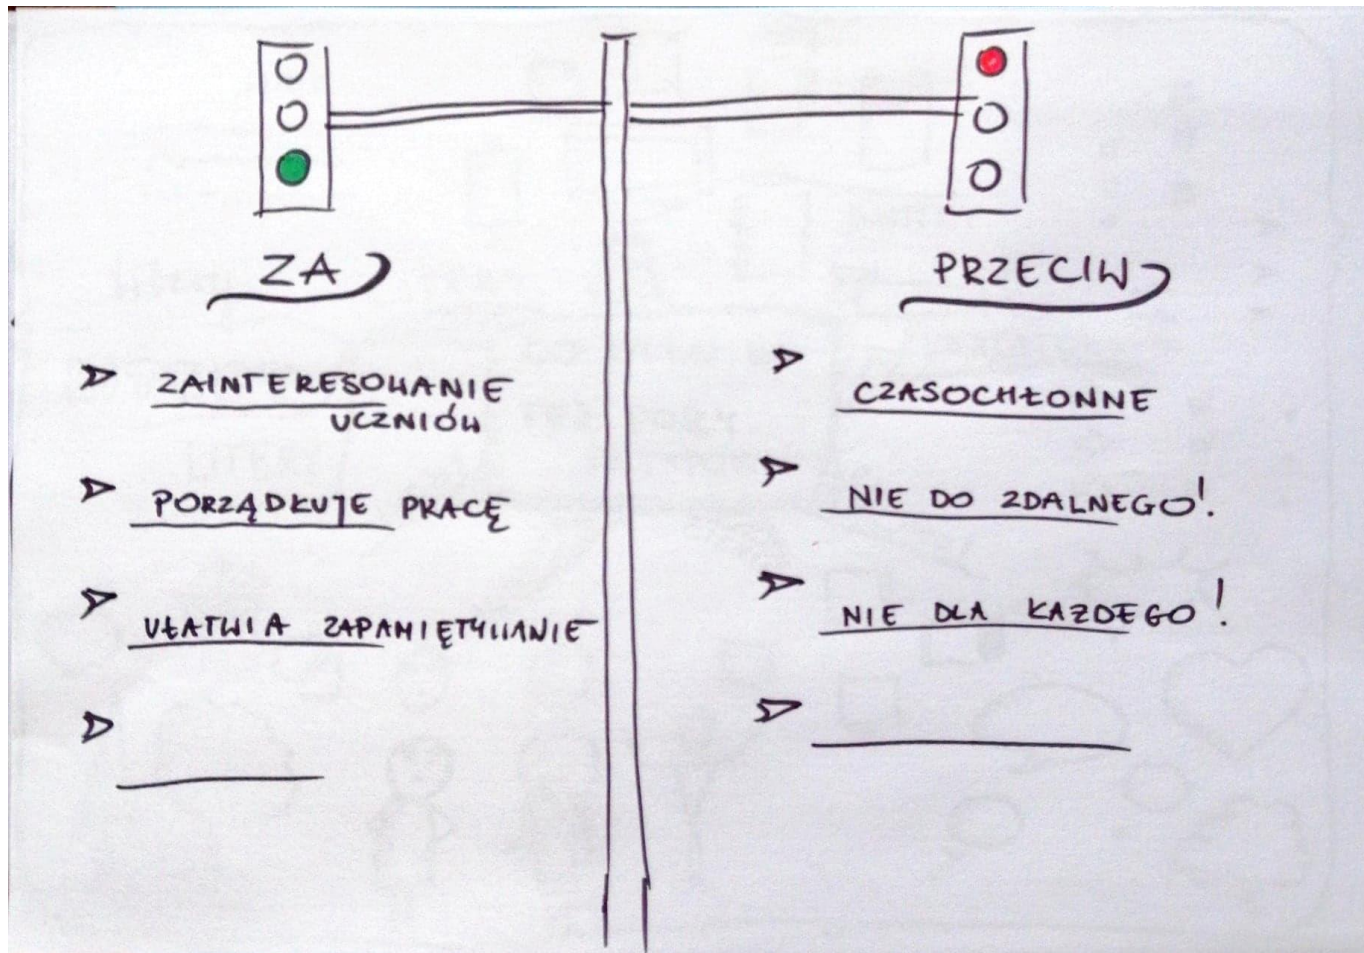 ZA
ZAINTERESOWANIE
UCZNIÓW
PORZĄDKUJE PRACĘ
UŁATWIA ZAPAMIĘTYWANIE
PRZECIW
CZASOCHŁONNE
NIE DO ZDALNEGO!
NIE DLA KAŻDEGO!